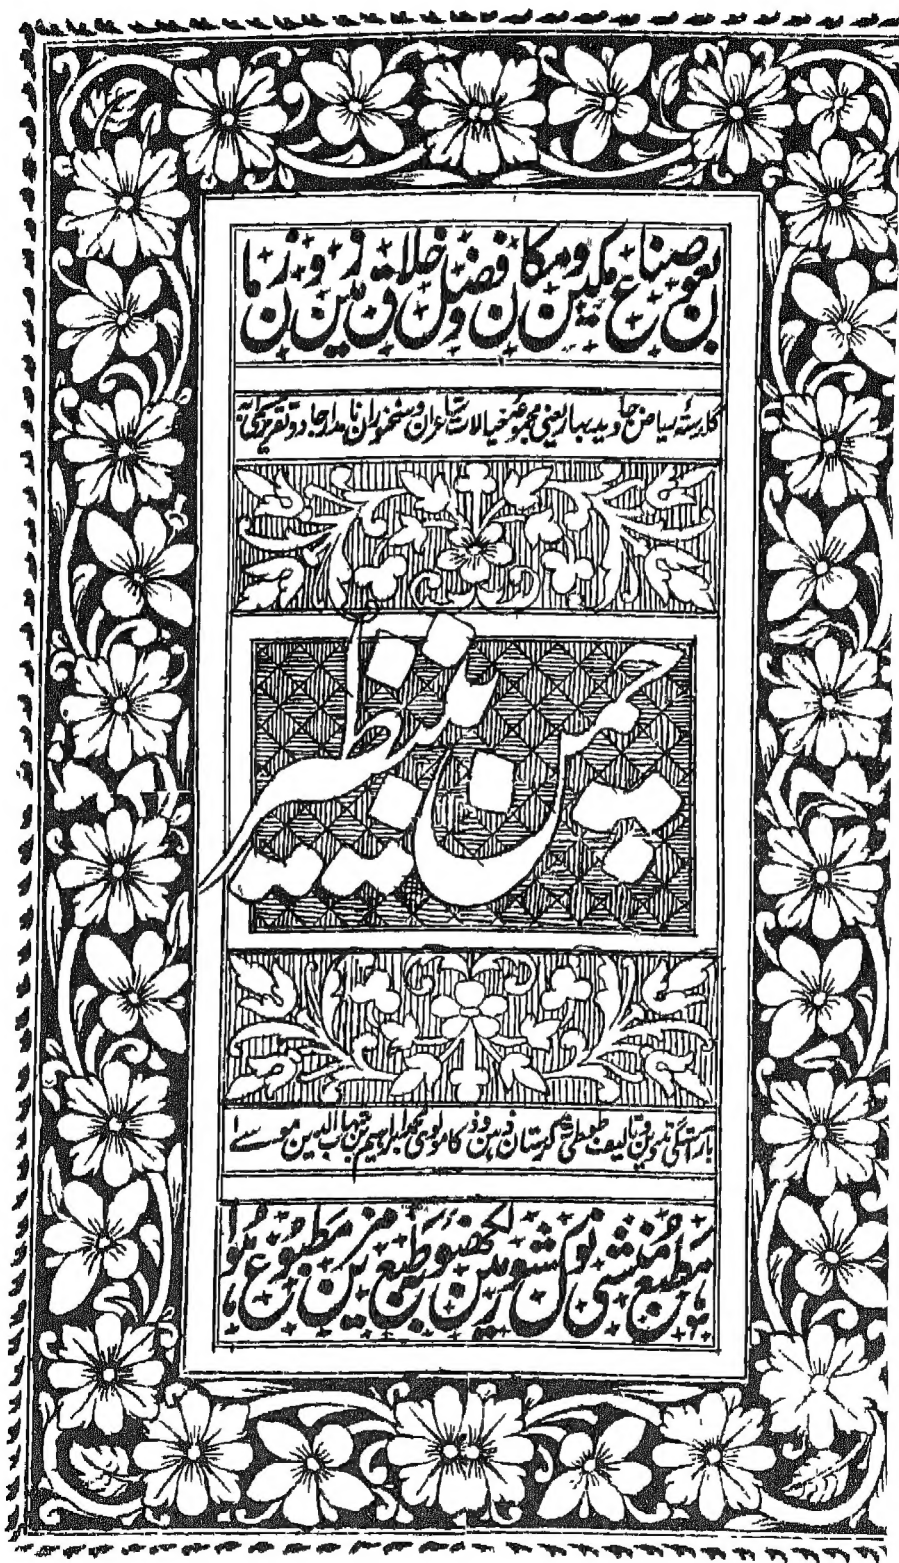 بعون صناع مکین و مکان و فضل خلاق زمین و زمان
گلدستہ ریاض جاوید بہار یعنی مجموعہ خیالات شاعران و سخنوران نامدار جادو تقریر یکتا
چمن بینظیر
بآراستگی تدوین و تالیف طوطی شکرستان ذہین و ذکا مولوی محمد ابراہیم بن شہاب الدین موسے
مطبع منشی نولکشور میں لکھنؤ بطبع مزین مطبوع ہوا